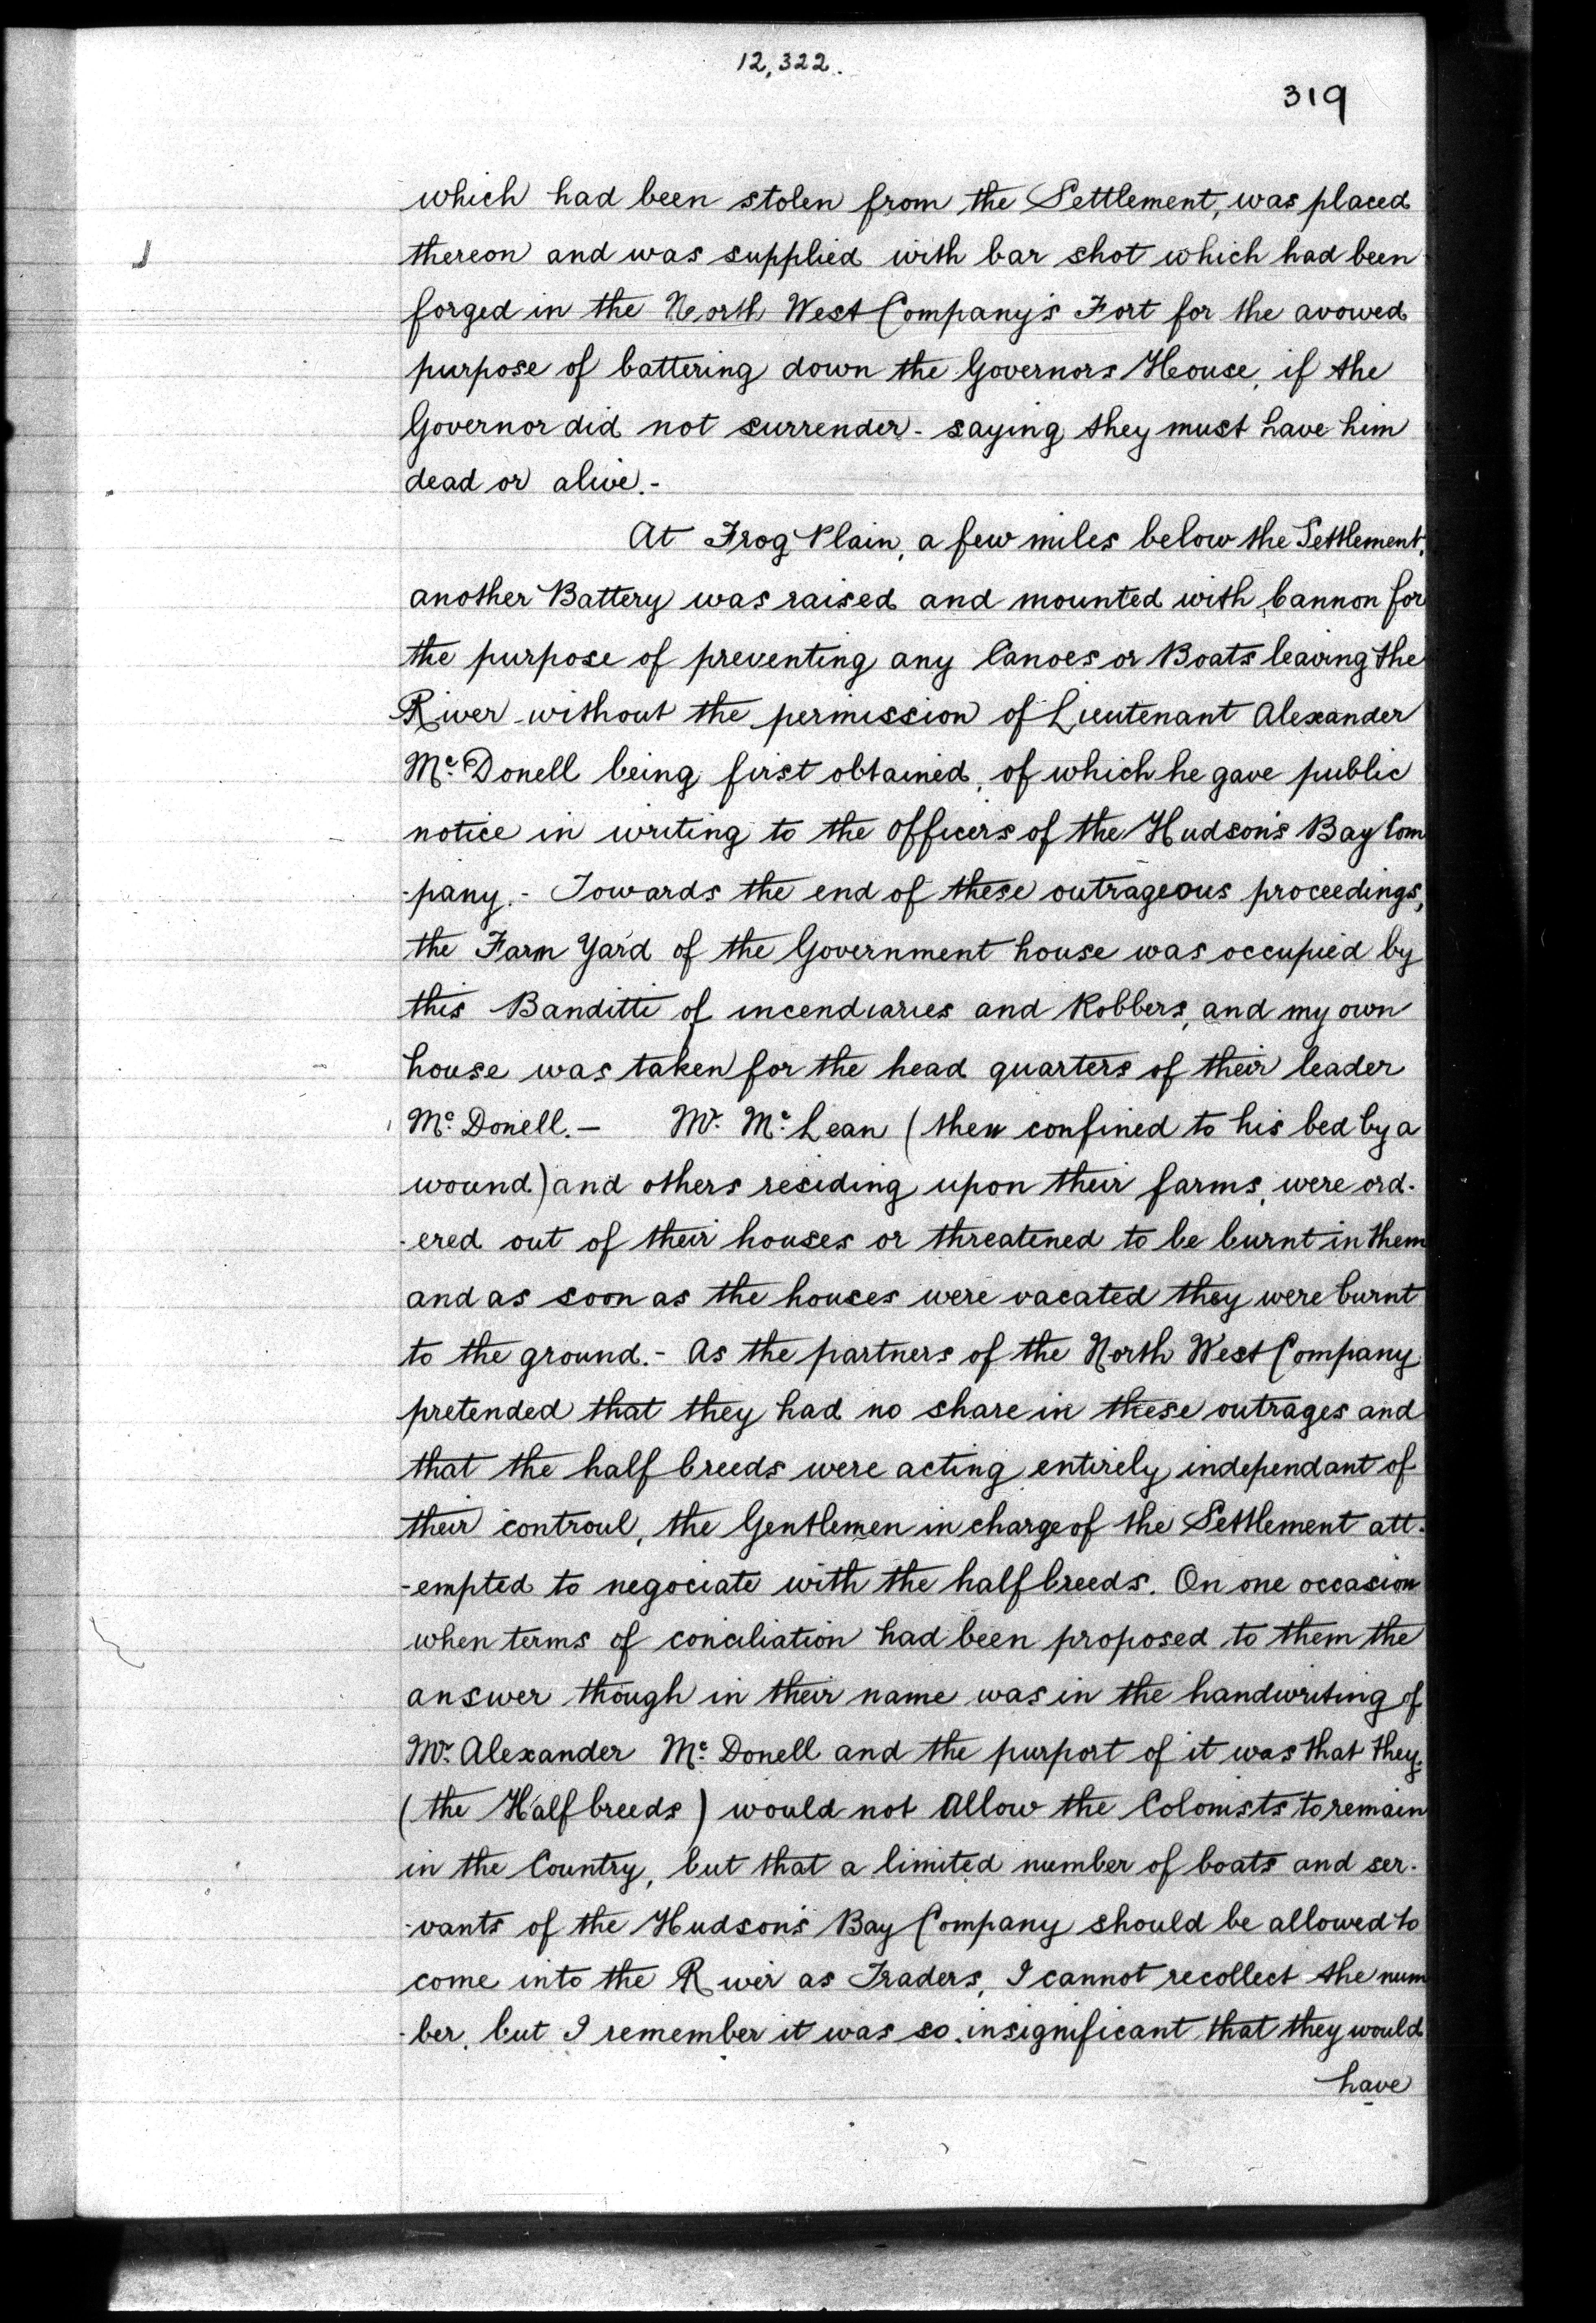 12,322.
319
which had been stolen from the Settlement, was placed
thereon and was supplied with bar shot which had been
forged in the North West Company's Fort for the avowed
purpose of battering down the Governors House, if the
Governor did not surrender - saying they must have him
dead or alive.-
At Frog Plain, a few miles below the Settlement,
another Battery was raised and mounted with Cannon for
the purpose of preventing any Canoes or Boats leaving the
River without the permission of Lieutenant Alexander
Mc. Donell being first obtained, of which he gave public
notice in writing to the Officers of the Hudson's Bay Com
-pany.- Towards the end of these outrageous proceedings,
the Farm Yard of the Government house was occupied by
this Banditti of incendiaries and Robbers, and my own
house was taken for the head quarters of their leader
Mc. Donell.- Mr. Mc. Lean (then confined to his bed by a
wound) and others residing upon their farms, were ord-
-ered out of their houses or threatened to be burnt in them
and as soon as the houses were vacated they were burnt
to the ground.- As the partners of the North West Company
pretended that they had no share in these outrages and
that the half breeds were acting entirely independant of
their controul, the Gentlemen in charge of the Settlement att-
-empted to negociate with the half breeds. On one occasion
when terms of conciliation had been proposed to them the
answer though in their name was in the handwriting of
Mr. Alexander Mc. Donell and the purport of it was that they
(the Half breeds) would not Allow the Colonists to remain
in the Country, but that a limited number of boats and ser-
-vants of the Hudson's Bay Company should be allowed to
come into the River as Traders, I cannot recollect the num
-ber, but I remember it was so insignificant that they would
have